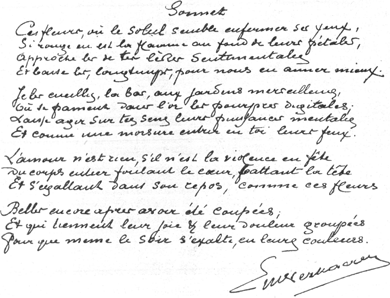 Sonnet
Ces fleurs, où le soleil semble enfermer ses yeux,
Si rouge en est la flamme au fond de leurs pétales,
Approche les de tes lèvres sentimentales
Et baise les, longtemps, pour nous en aimer mieux.
Je les cueillis, là bas, aux jardins merveilleux,
Où se pament dans l'or les pourpres digitales;
Laisse agir sur tes sens leurs puissances mentales
Et comme une morsure entrer en toi leurs feux.
L'amour n'est rien, s'il n'est la violence en fête
Du corps entier foulant le cœur, battant la tête
Et s'exaltant dans son repos, comme ces fleurs
Belles encore après avoir été coupées,
Et qui tiennent leur joie & leur douleur groupées
Pour que meme le soir s'exalte, en leurs couleurs.